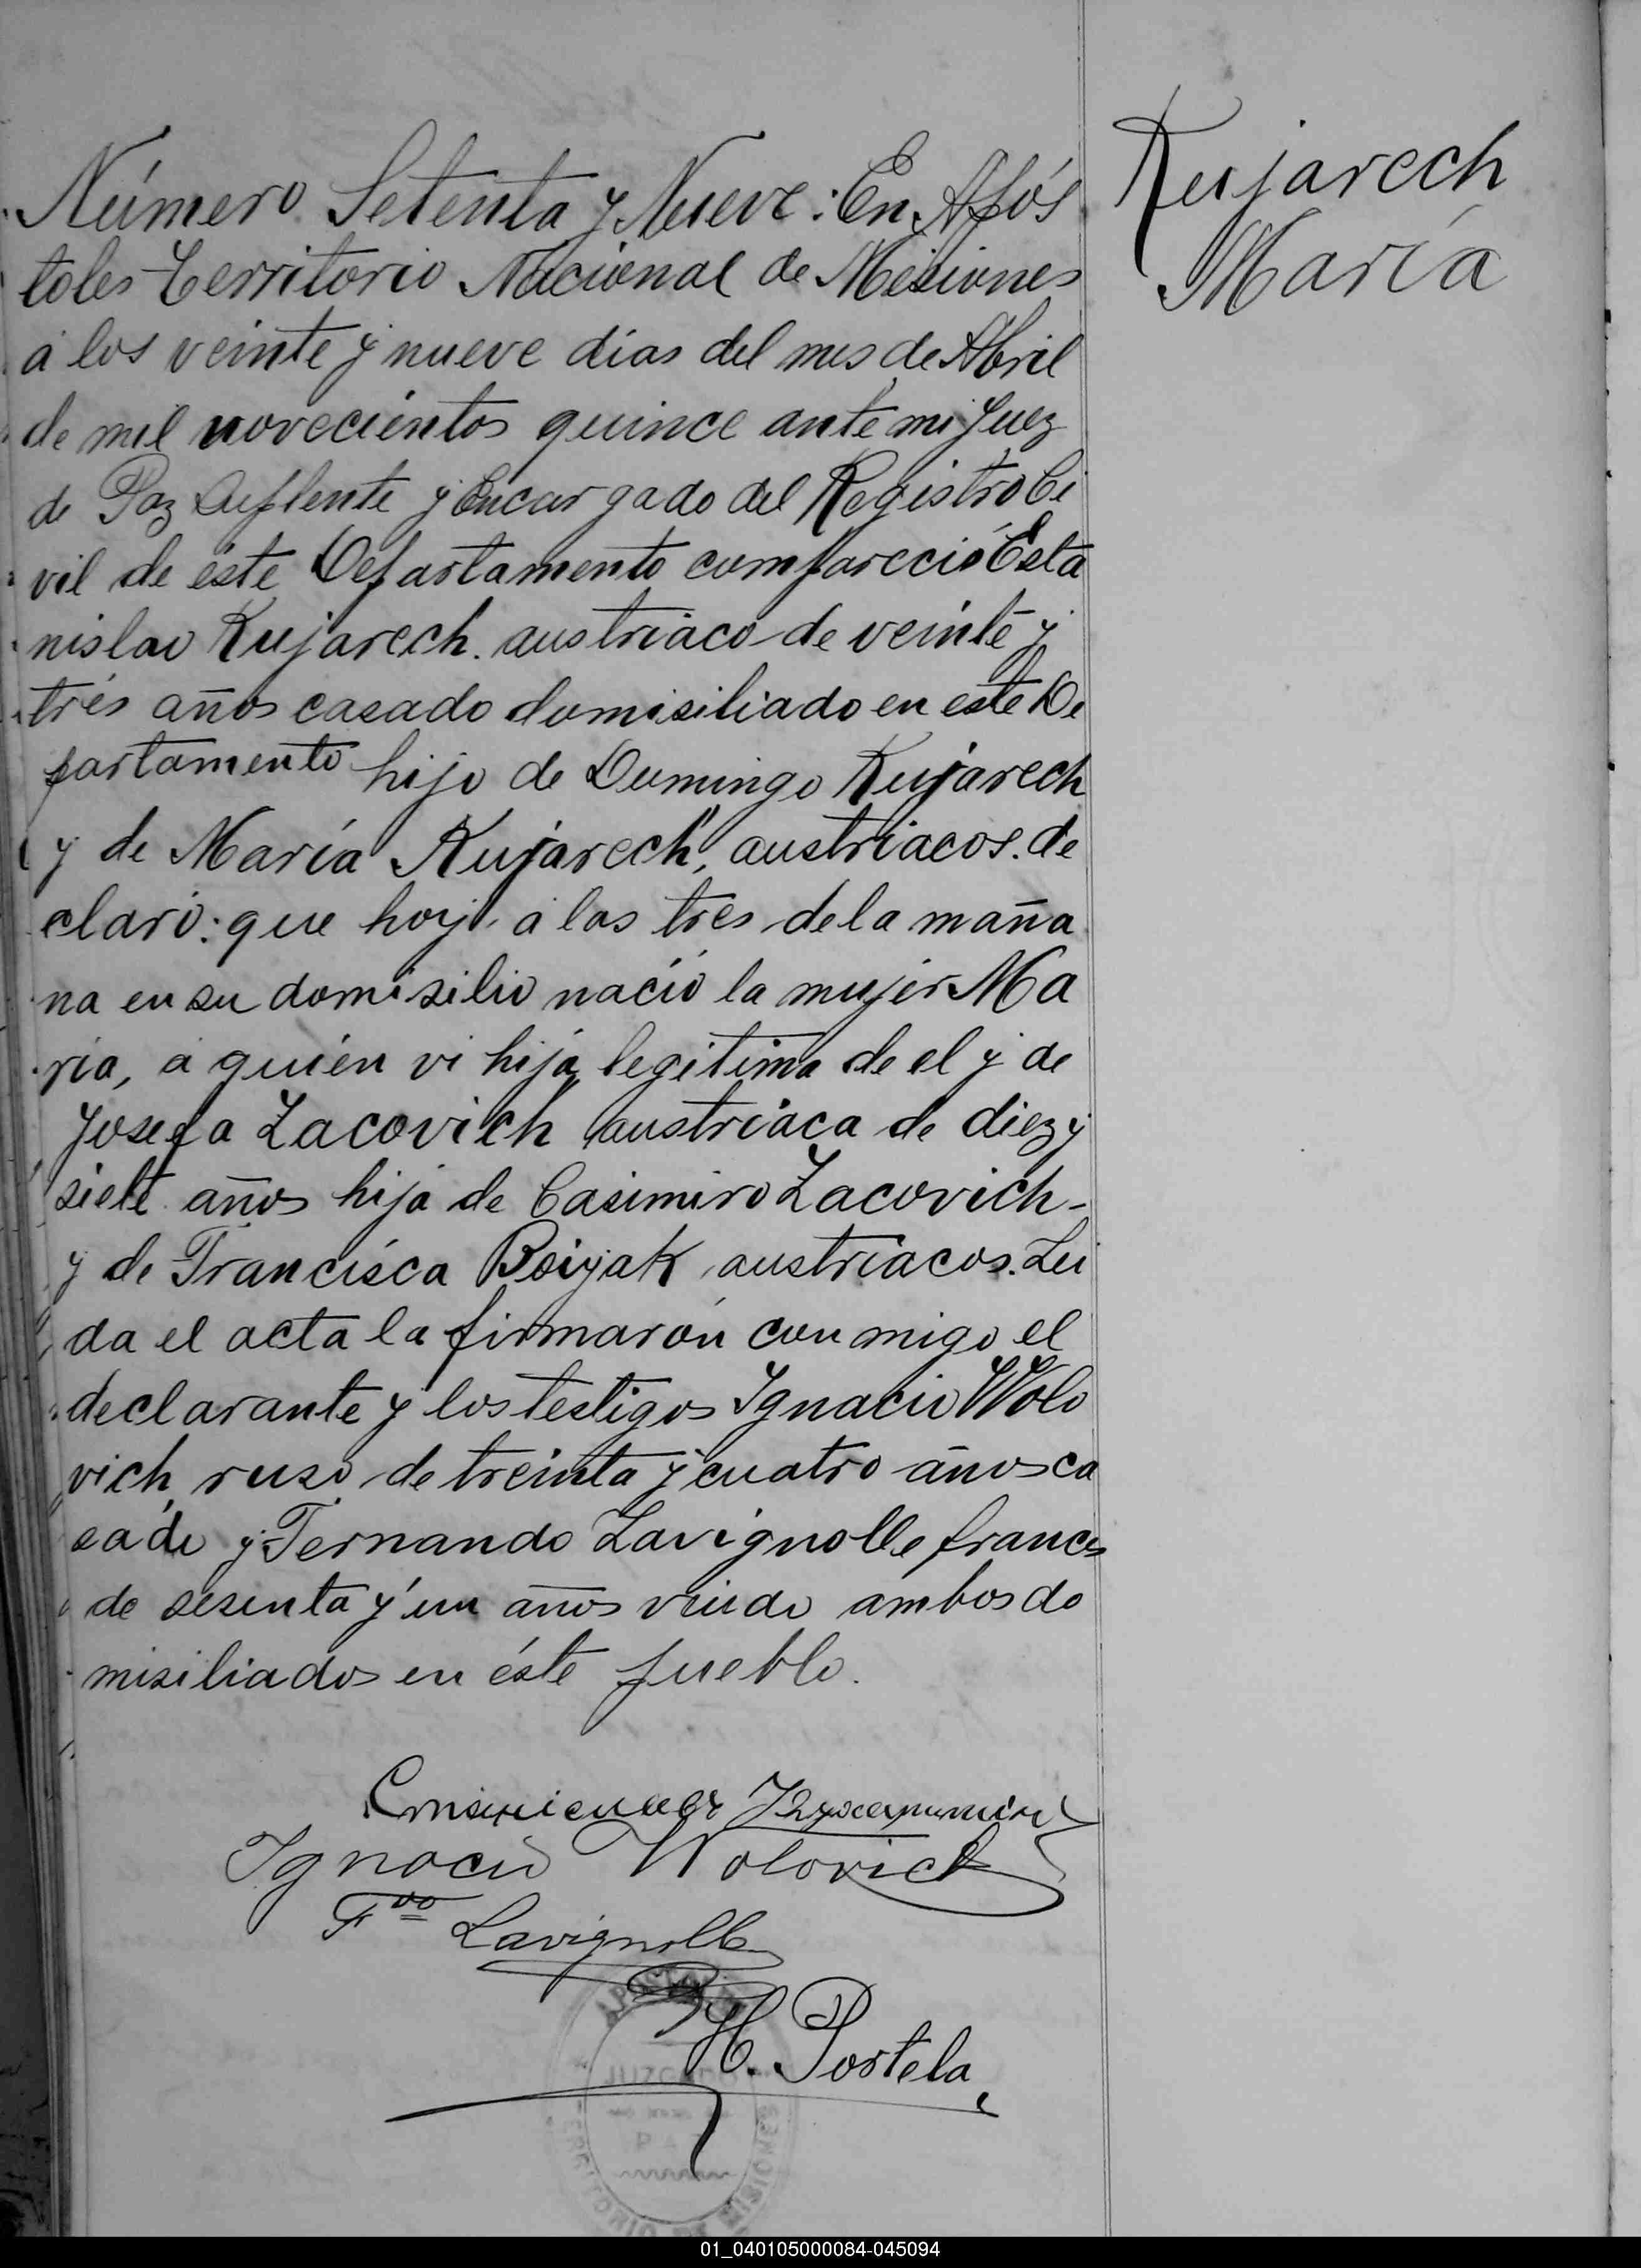 Kujarech
María
Número Setenta y Nueve: En Após
toles Territorio Nacional de Misiones
á los veinte y nueve dias del mes de Abril
de mil novecientos quince ante mi Juez
de Paz Suplente y Encargado del Registro Ci
vil de éste Departamento compareció Esta
nislao Kujarech. austriaco de veinte y
trés años casado domisiliado en este De
partamento hijo de Domingo Kujarech
y de María Kujarech, austriacos. de
claró: que hoy á las tres de la maña
na en su domisilio nació la mujer Ma
ria, á quién vi hija legitima de el y de
Josefa Zacovich austriaca de diez y
siete años hija de Casimiro Zacovich-
y de Francisca Boiyak, austriacos. Lei
da el acta la firmarón conmigo el
declarante y los testigos Ignacio Wolo
vich ruso de treinta y cuatro años ca
sado y Fernando Lavignolle frances
de sesenta y un años viudo ambos do
misiliados en éste pueblo.
Ignacio Wolovich
Fdo Lavignolle
H. Portela
JUZG
PAZ
TERRITORIO DE MISIONES
01_040105000084-045094